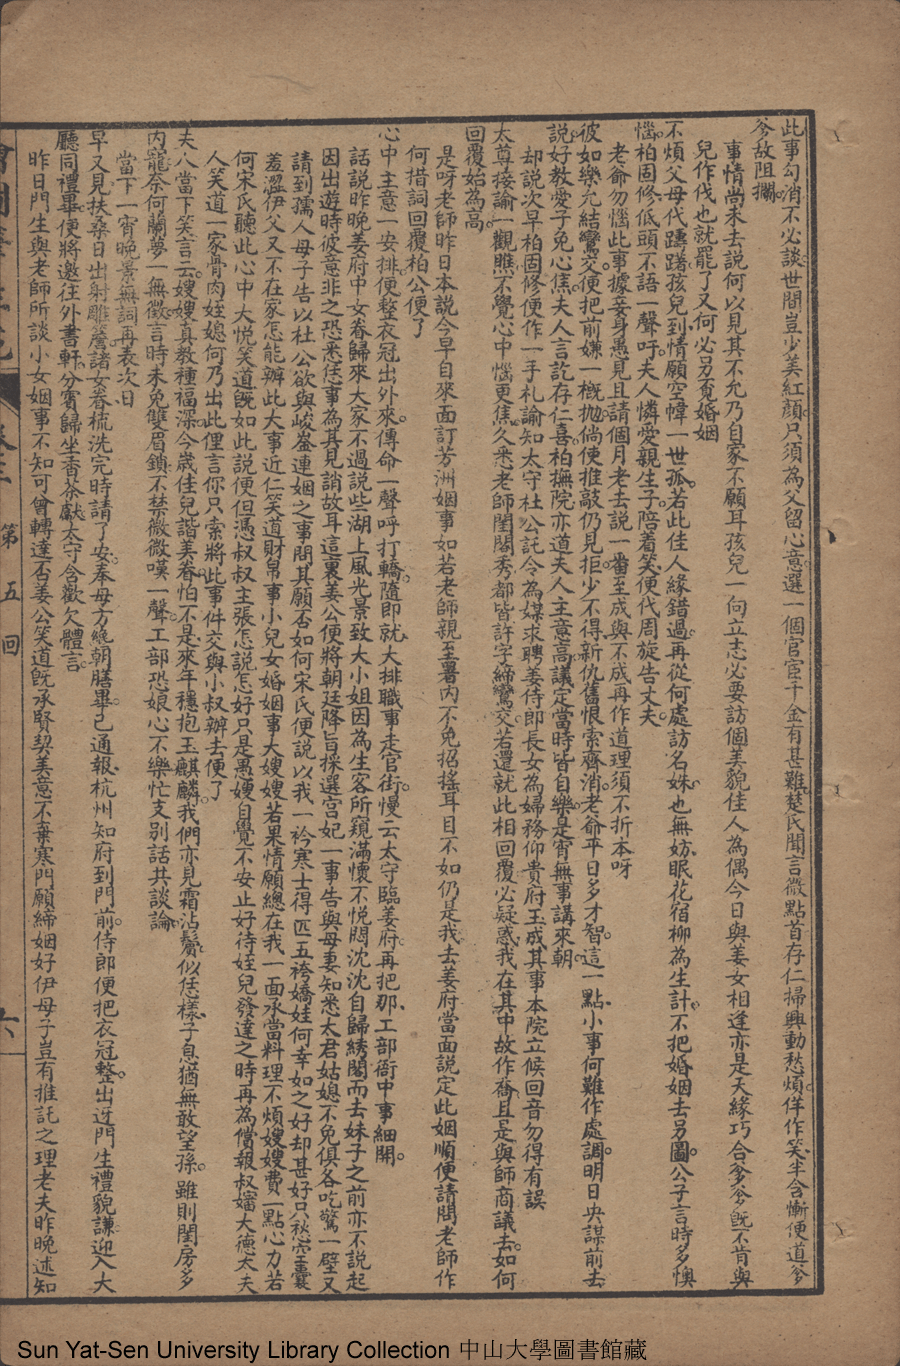 此事勾消不必談世間豈少美紅顏只須為父留心意選一個官宦千金有甚難楚氏聞言微點首存仁掃興動愁煩佯作笑半含慚便道爹
爹故阻攔
事情尚未去說何以見其不允乃自家不願耳孩兒一向立志必要訪個美貌佳人為偶今日與姜女相逢亦是天緣巧合爹爹既不肯與
兒作伐也就罷了又何必另覓婚姻
不煩父母代躊躇孩兒到情願空幃一世孤若此佳人緣錯過再從何處訪名姝也無妨眠花宿柳為生計不把婚姻去另圖公子言時多懊
惱柏固修低頭不語一聲吁夫人憐愛親生子陪着笑便代周旋告丈夫
老爺勿惱此事據妾身愚見且請個月老去說一番至成與不成再作道理須不折本呀
彼如樂允結鸞交便把前嫌一概拋倘使推敲仍見拒少不得新仇舊恨索齊消老爺平日多才智這一點小事何難作處調明日央謀前去
說好教愛子免心焦夫人言訖存仁喜柏撫院亦道夫人主意高議定當時皆自樂是宵無事講來朝
却說次早柏固修便作一手札諭知太守杜公託今為媒求聘姜侍郎長女為婦務仰貴府玉成其事本院立候回音勿得有誤
太尊接諭一觀瞧不覺心中惱更焦久悉老師閨閣秀都皆許字締鸞交若還就此相回覆必疑惑我在其中故作喬且是與師商議去如何
回覆始為高
是呀老師昨日本說今早自來面訂芳洲姻事如若老師親至署內不免招搖耳目不如仍是我去姜府當面說定此姻順便請問老師作
何措詞回覆柏公便了
心中主意一安排便整衣冠出外來傳命一聲呼打轎隨即就大排職事走官街慢云太守臨姜府再把那工部衙中事細開
話說昨晚姜府中女眷歸來大家不過說些湖上風光景致大小姐因為生客所窺滿懷不悅悶沈沈自歸綉閣而去妹子之前亦不說起
因出遊時彼意非之恐悉恁事為其見誚故耳這裏姜公便將朝廷降旨採選宮妃一事告與母妻知悉太君姑媳不免俱各吃驚一壁又
請到孺人母子告以杜公欲與峻崟連姻之事問其願否如何宋氏便說以我一衿寒士得匹五袴嬌娃何幸如之好却甚好只愁空囊
羞澀伊父又不在家怎能辦此大事近仁笑道財帛事小兒女婚姻事大嫂嫂若果情願總在我一面承當料理不煩嫂嫂費一點心力若
何宋氏聽此心中大悅笑道既如此說便但憑叔叔主張怎說怎好只是愚嫂自覺不安止好待姪兒發達之時再為償報叔嬸大德太夫
人笑道一家骨肉姪媳何乃出此俚言你只索將此事件交與小叔辦去便了
夫八當下笑言云嫂嫂真教種福深今歲佳兒諧美眷怕不是來年穩抱玉麒麟我們亦見霜沾鬢似恁樣子息猶無敢望孫雖則閨房多
內寵奈何蘭夢一無徵言時未免雙眉鎖不禁微微嘆一聲工部恐娘心不樂忙支別話共談論
當下一宵晚景無詞再表次日
早又見扶桑日出射雕簷諸女眷梳洗完時請了安奉母方纔朝膳畢已通報杭州知府到門前侍郎便把衣冠整出迓門生禮貌謙迎入大
廳同禮畢便將邀往外書軒分賓歸坐香茶獻太守含歡欠體言
昨日門生與老師所談小女姻事不知可曾轉達否姜公笑道既承賢契美意不棄寒門願締姻好伊母子豈有推託之理老夫昨晚述知
第五回
六
Sun Yat-Sen University Library Collection 中山大學圖書館藏